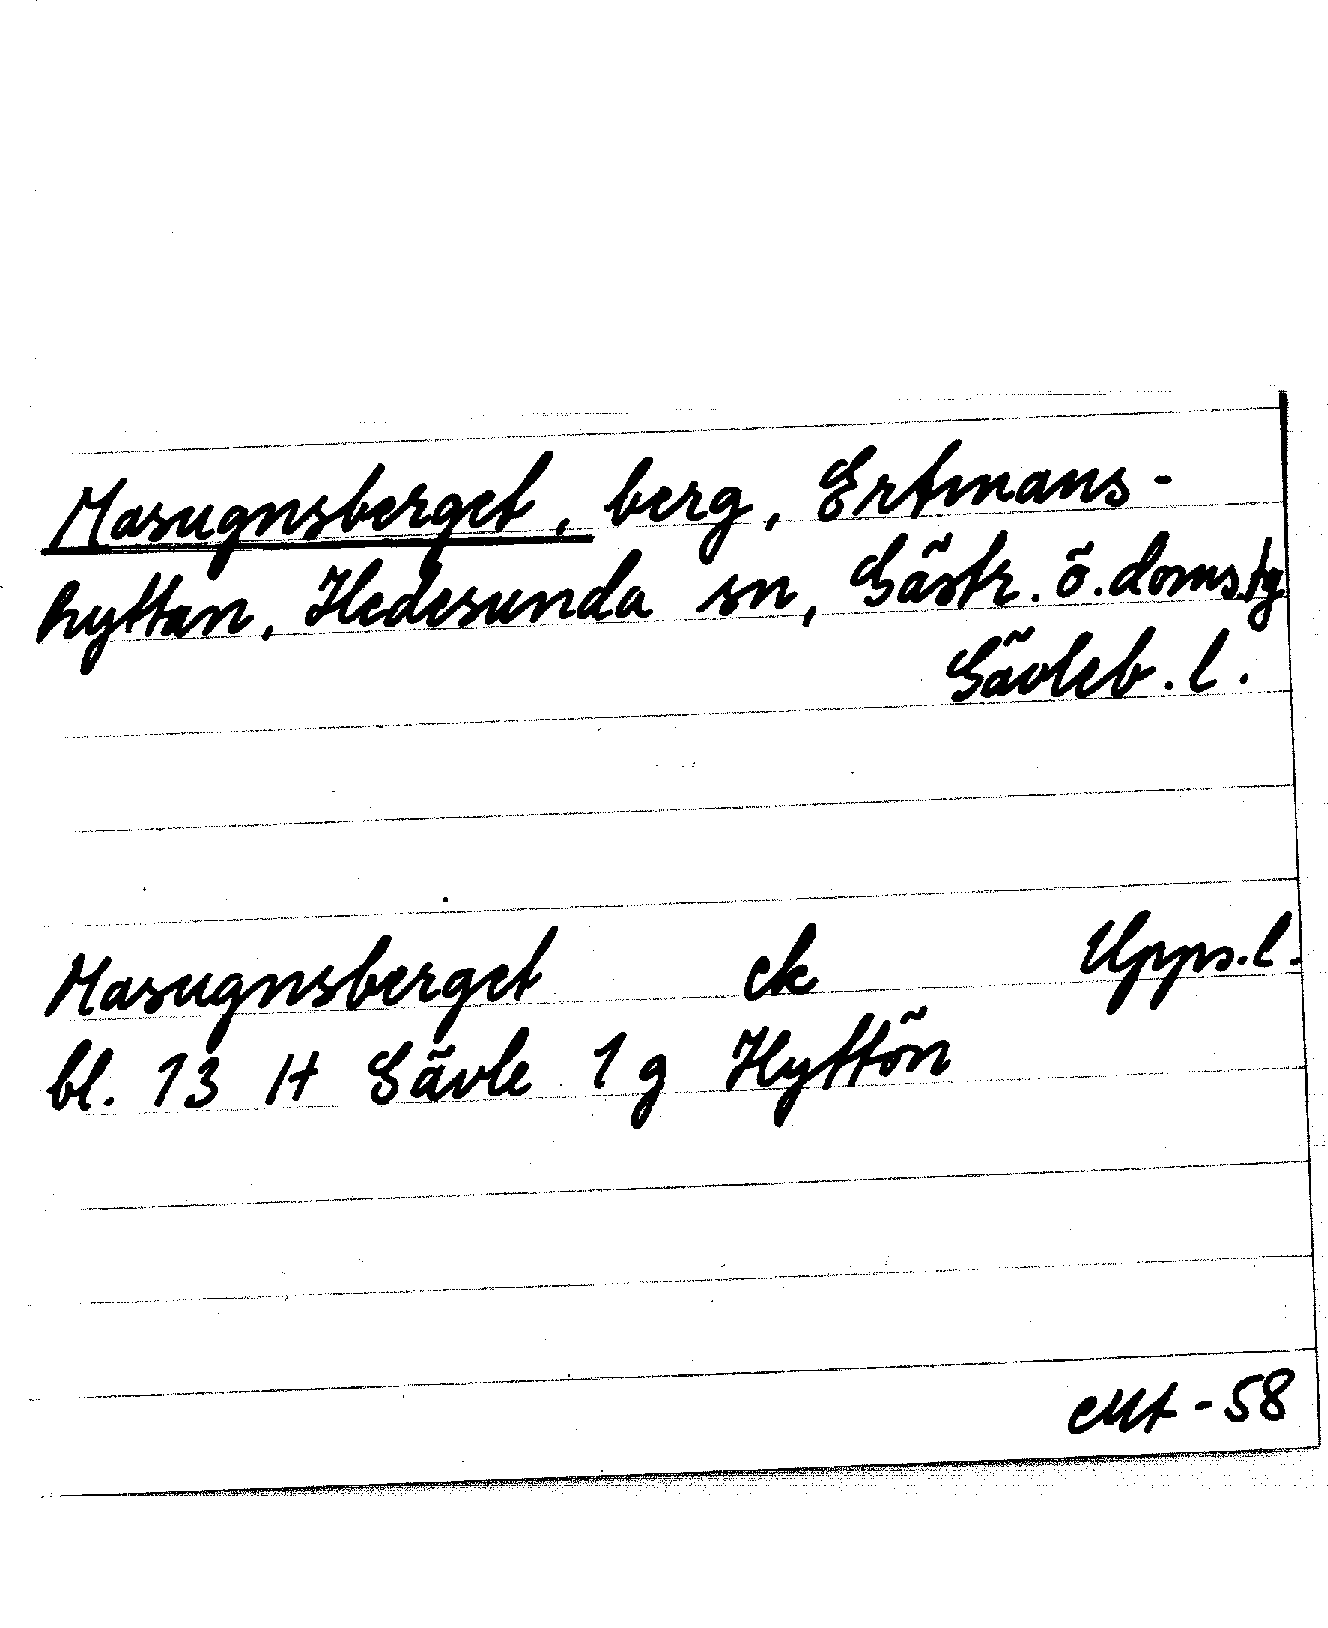 Masugnsberget, berg, Ertmans-
hyttan, Hedesunda sn, Gästr. ö. doms.tg
Gävleb. l.
Masugnsberget ek Upps. l.
bl. 13 H Gävle 1 g Hyttön
-58